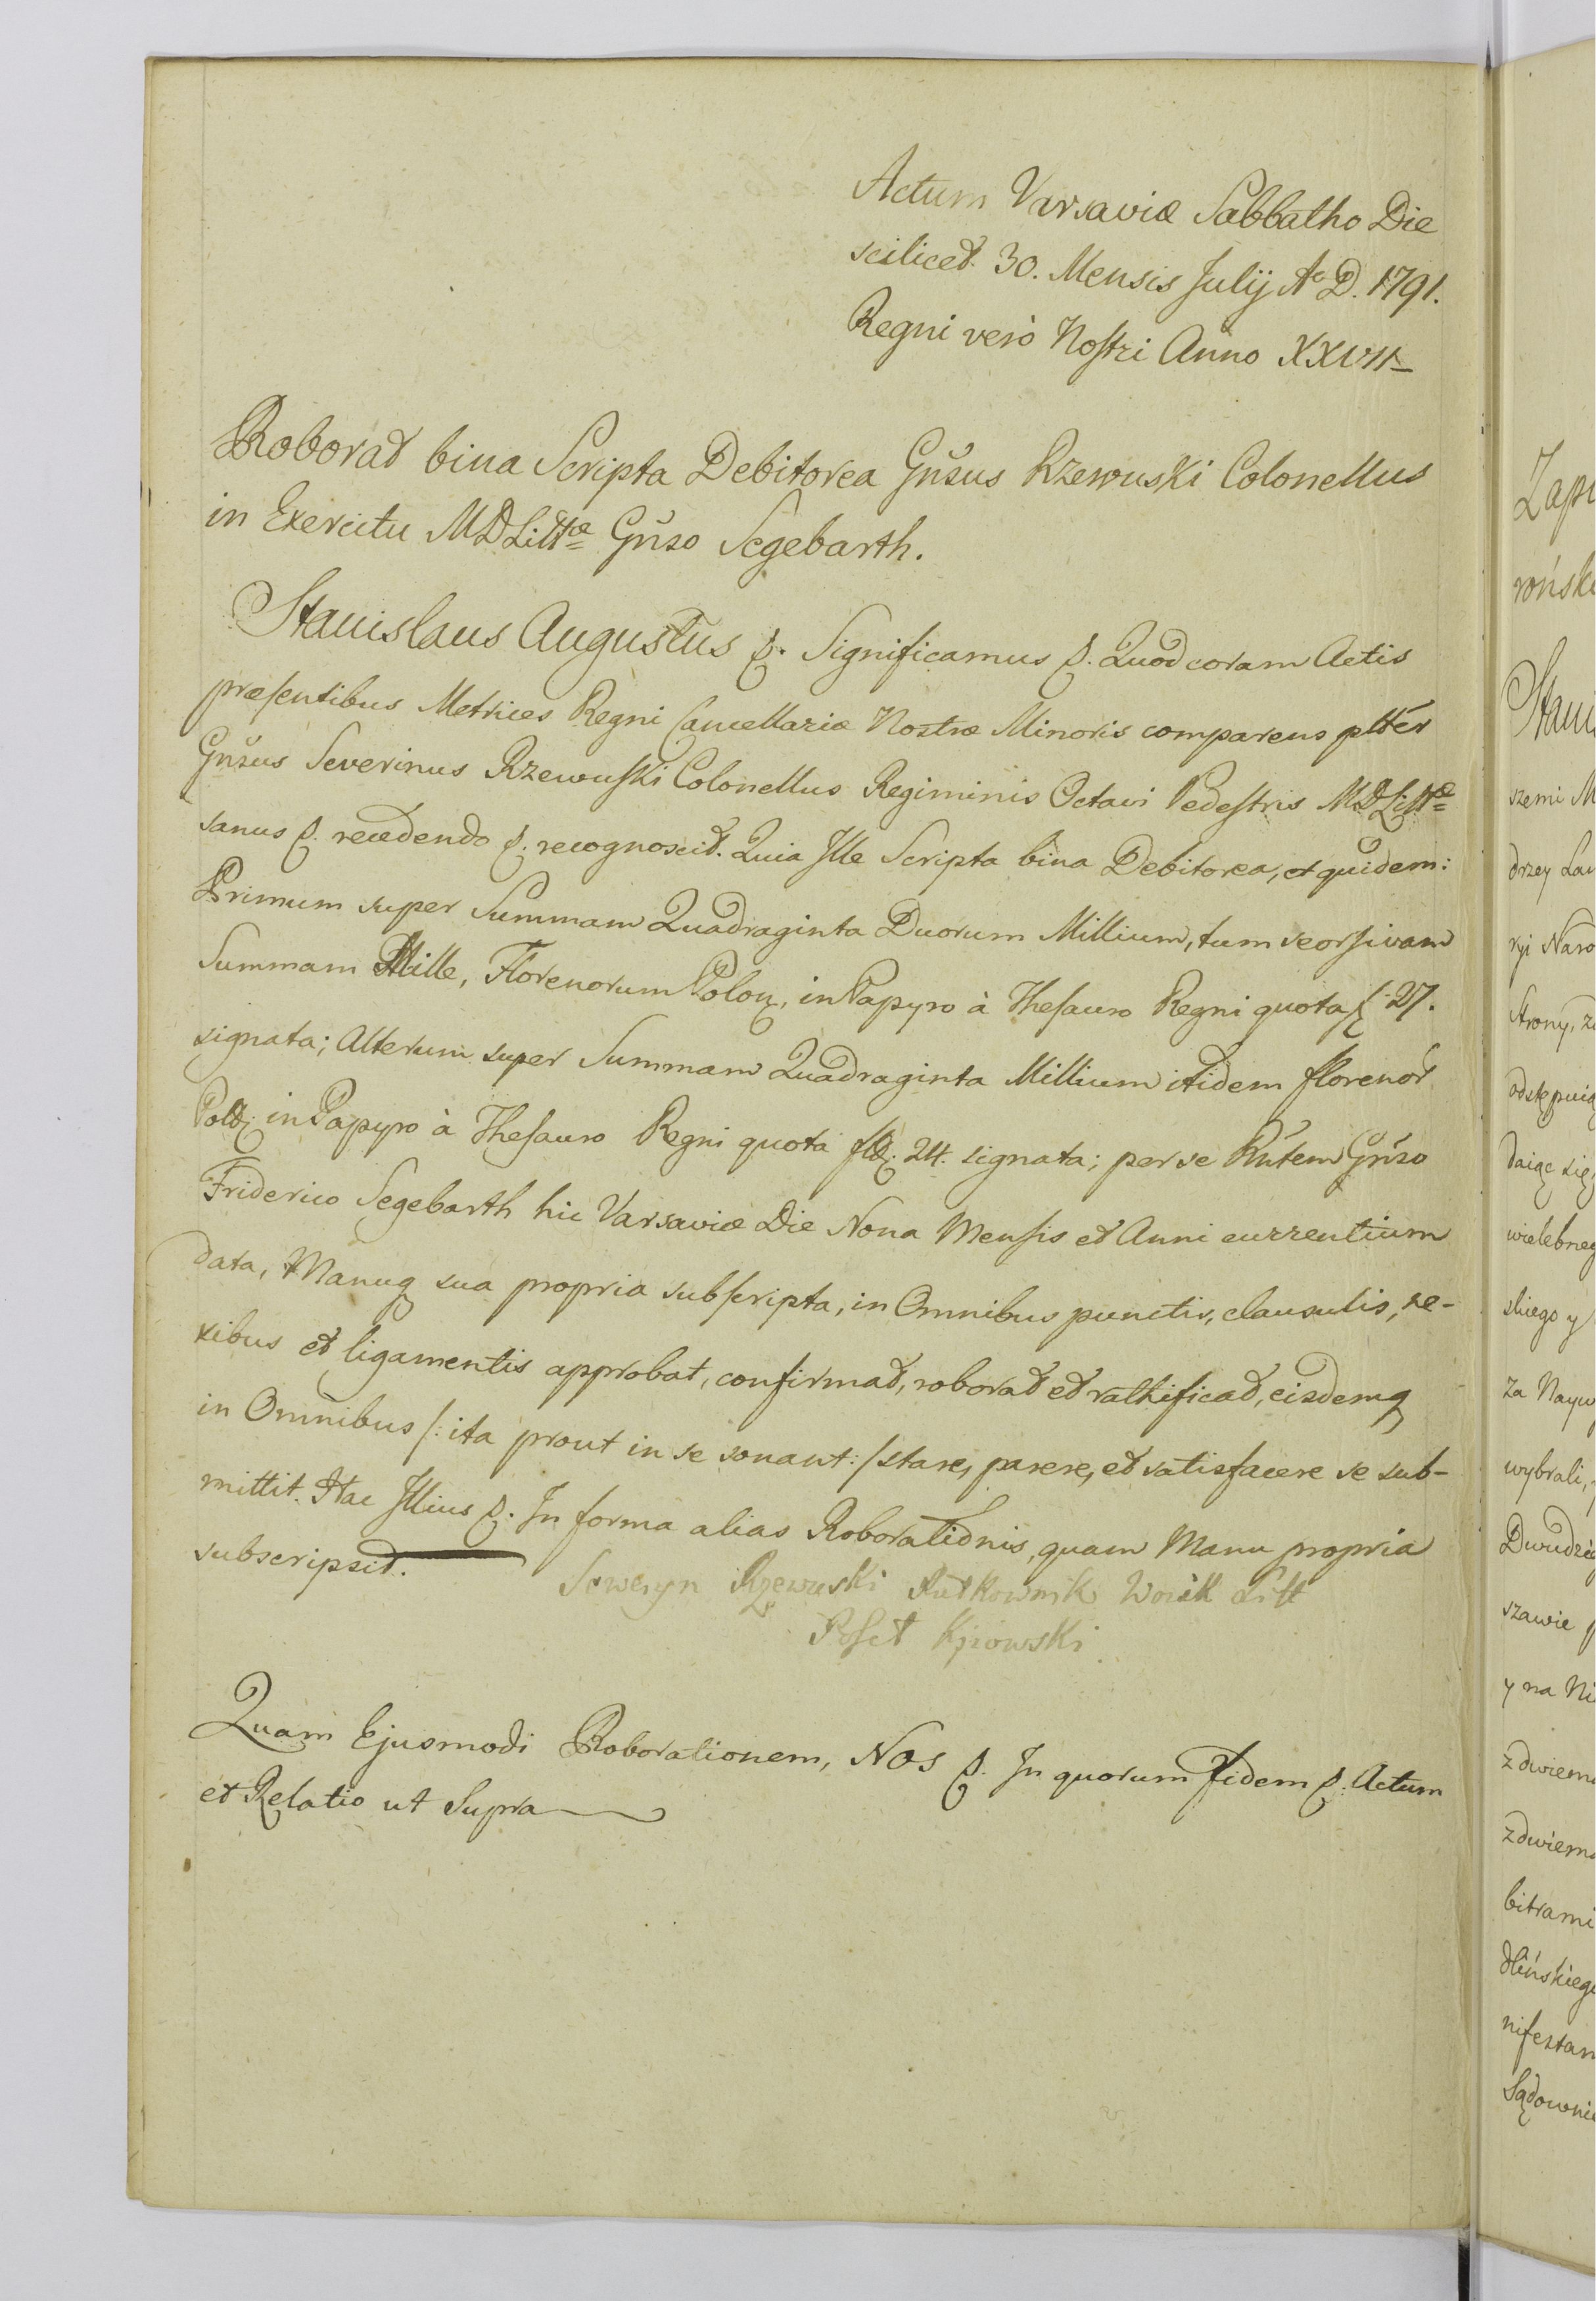 Actum Varsaviæ Sabbatho Die
scilicet. 30. Mensis Julij Aº D. 1791.
Regni verò Nostri Anno XXVII
Roborat bina Scripta Debitorea Gñsus Rzewuski Colonellus
in Exercitu MDLittæ Gñso Segebarth.
Stanislaus Augustus &. Significamus &. Quod coram Actis
præsentibus Metrices Regni Cancellariæ Nostræ Minoris comparens pltėr
Gñsus Severinus Rzewuski Colonellus Regiminis Octavi Pedestris MDLittæ
sanus &. recedendo &. recognoscit. Quia Ille Scripta bina Debitorea, et quidem:
Primum super Summam Quadraginta Duorum Millium, tum seorsivam
Summam Mille, Florenorum Polon, in Papyro à Thesauro Regni quota f. 27.
signata; Alterum super Summam Quadraginta Millium itidem florenor
Polł; in Papyro à Thesauro Regni quotâ fl. 24. signata; per se Rñtem Gñso
Friderico Segebarth hic Varsaviæ Die Nona Mensis et Anni currentium
data, Manuq sua propria subscripta, in Omnibus punctis, clausulis, ne-
xibus et ligamentis approbat, confirmat, roborat et rathificat, eisdemq
in Omnibus /: ita prout in se sonant :/ stare, parere, et satisfacere se sub-
mittit. Hac Illius &. In forma alias Roborationis, quam Manu propria
subscripsit.
Seweryn Rzewuski Pułkownik Woisk Litt
Poseł Kjiowski
Quam Ejusmodi Roborationem, NOS &. In quorum fidem &. Actum
et Relatio ut Supra
Zapi
rońsk
Stani
szemi M
drzey Law
ryi Naro
Strony, za
odstępuią
daiąc się
wielebneg
skiego y
za Nayw
wybrali,
Dwudzie
szawie p
y na Ni
z dwiema
zdwiema
bitrami
dlińskiego
nifestam
Sądownie